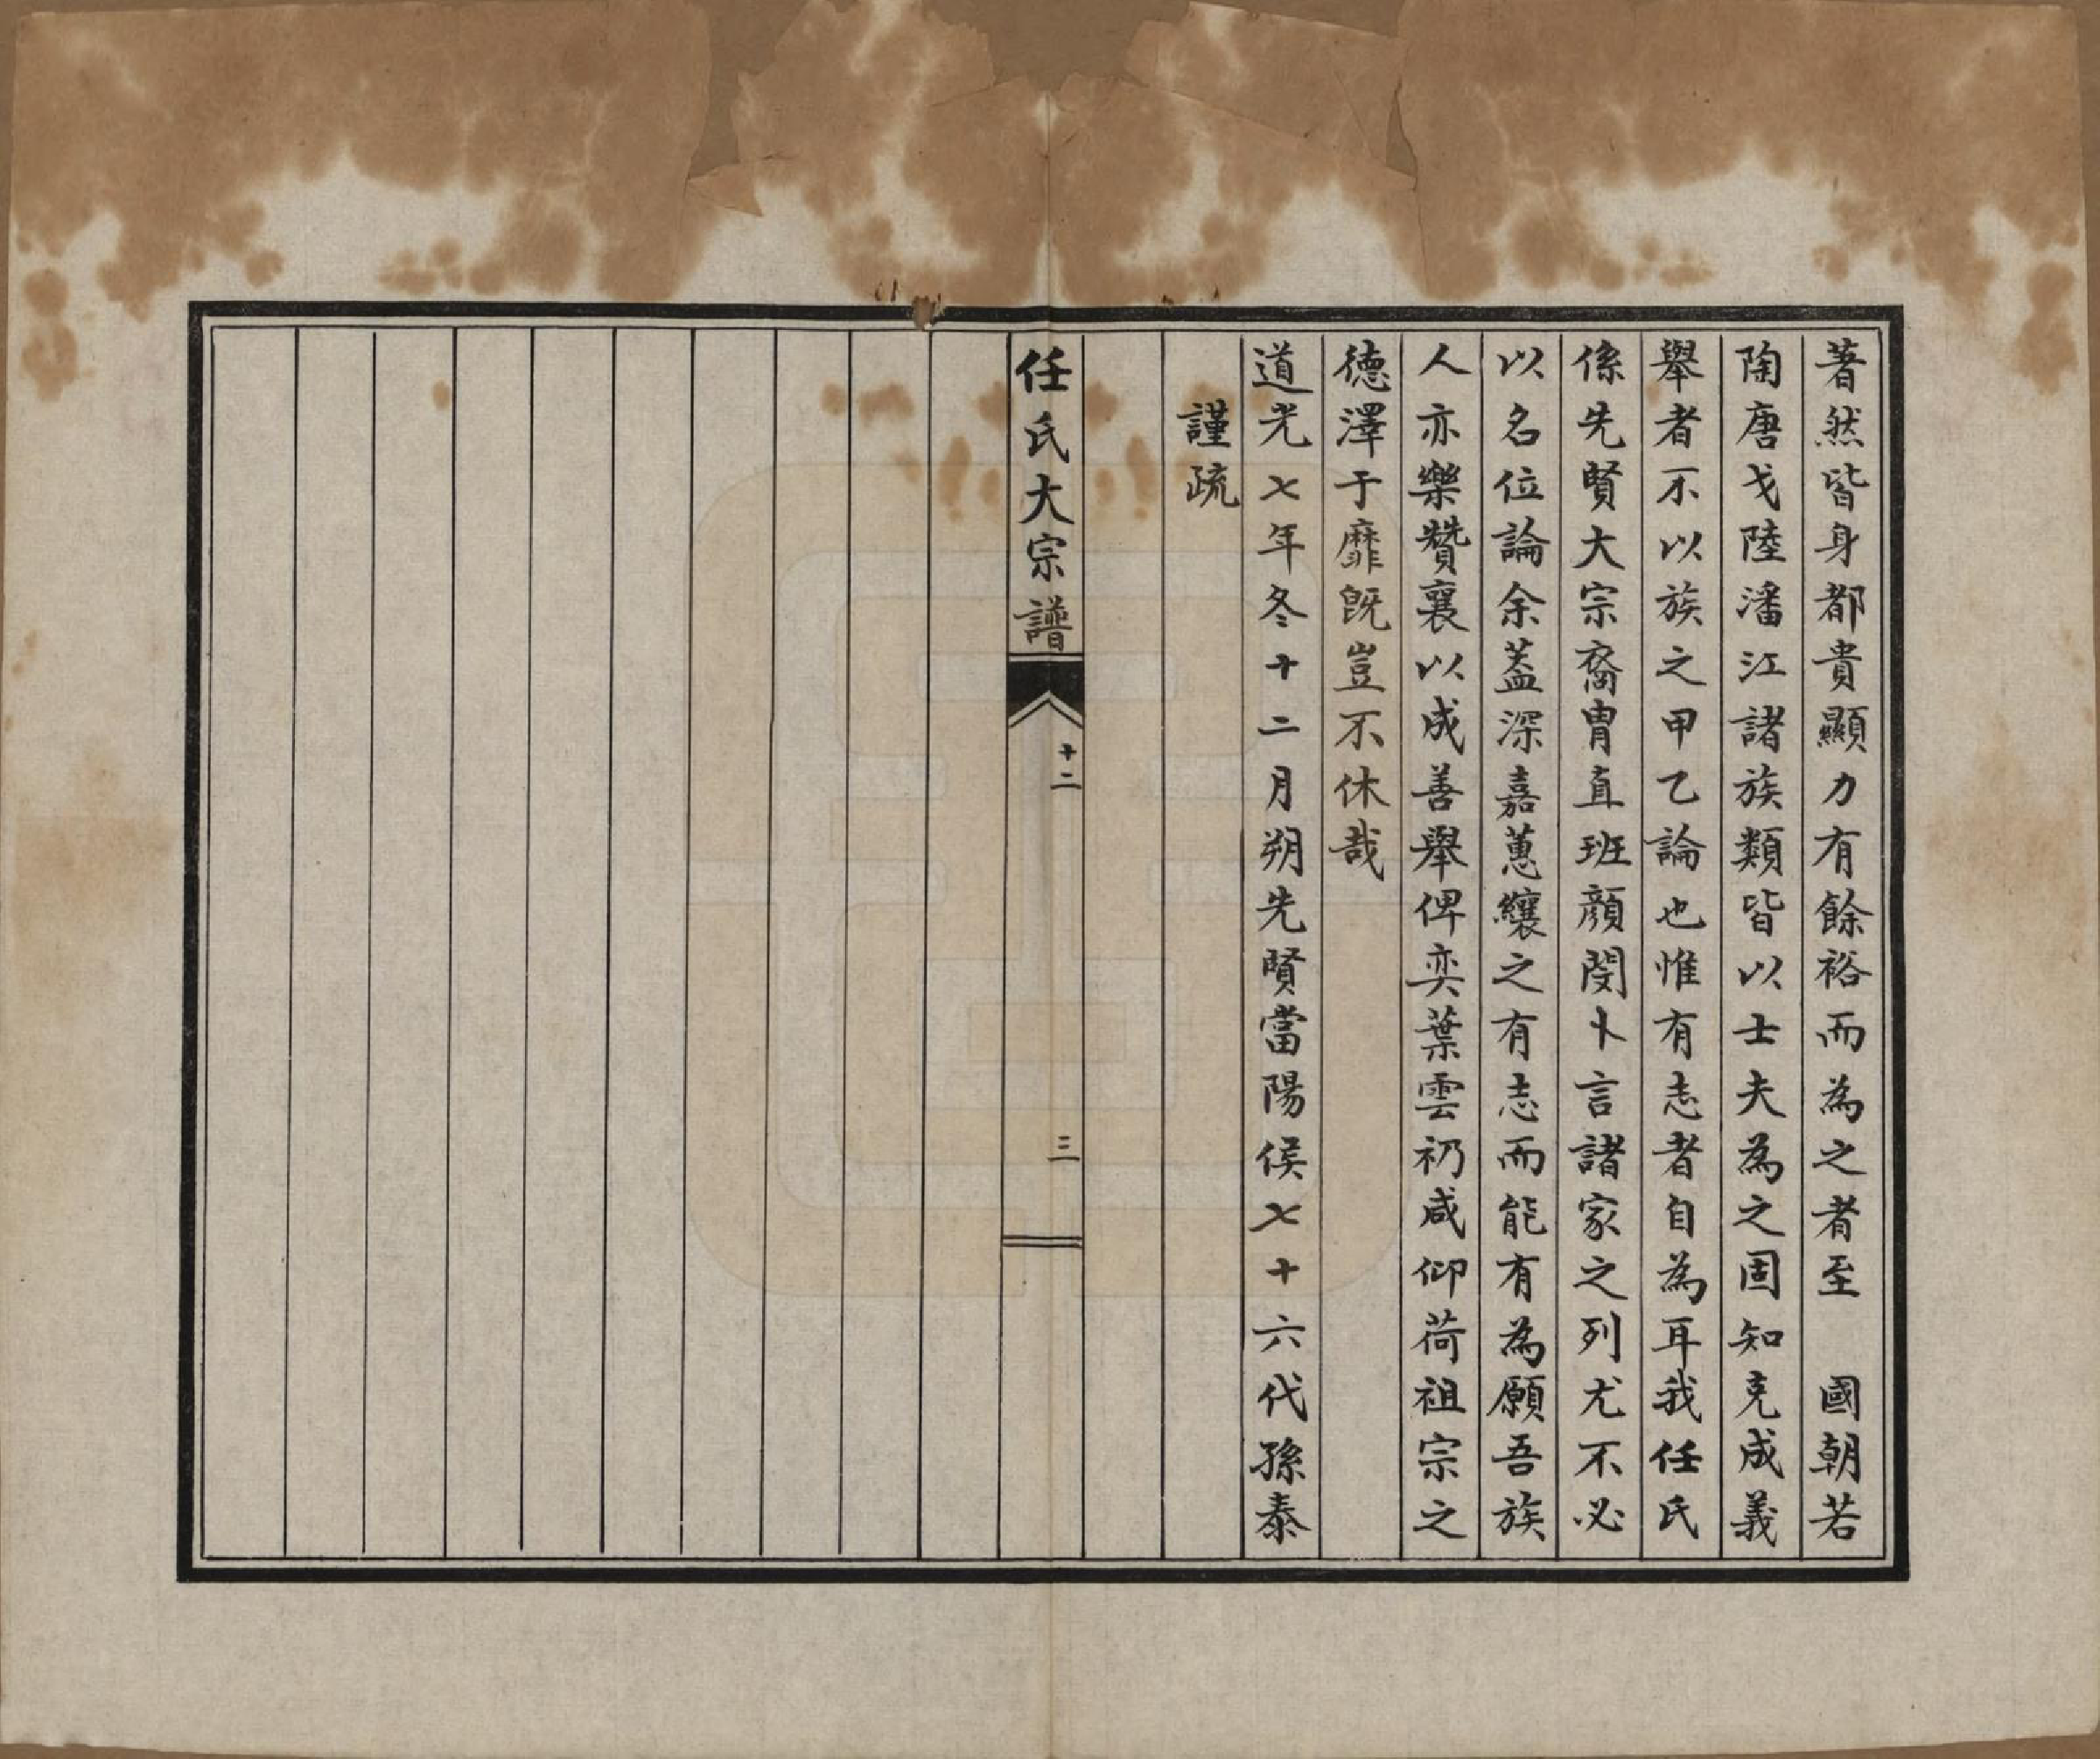 著然皆身都貴顯力有餘裕而為之者至　國朝若
陶唐戈陸潘江諸族類皆以士夫為之固知克成義
舉者不以族之甲乙論也惟有志者自為耳我任氏
係先賢大宗裔胄直班顏閔卜言諸家之列尤不必
以名位論余蓋深嘉蕙纕之有志而能有為願吾族
人亦樂贊襄以成善舉俾奕葉雲礽咸仰荷祖宗之
德澤于靡旣豈不休哉
道光七年冬十二月朔先賢當陽侯七十六代孫泰
謹疏
任氏大宗譜
十二
三